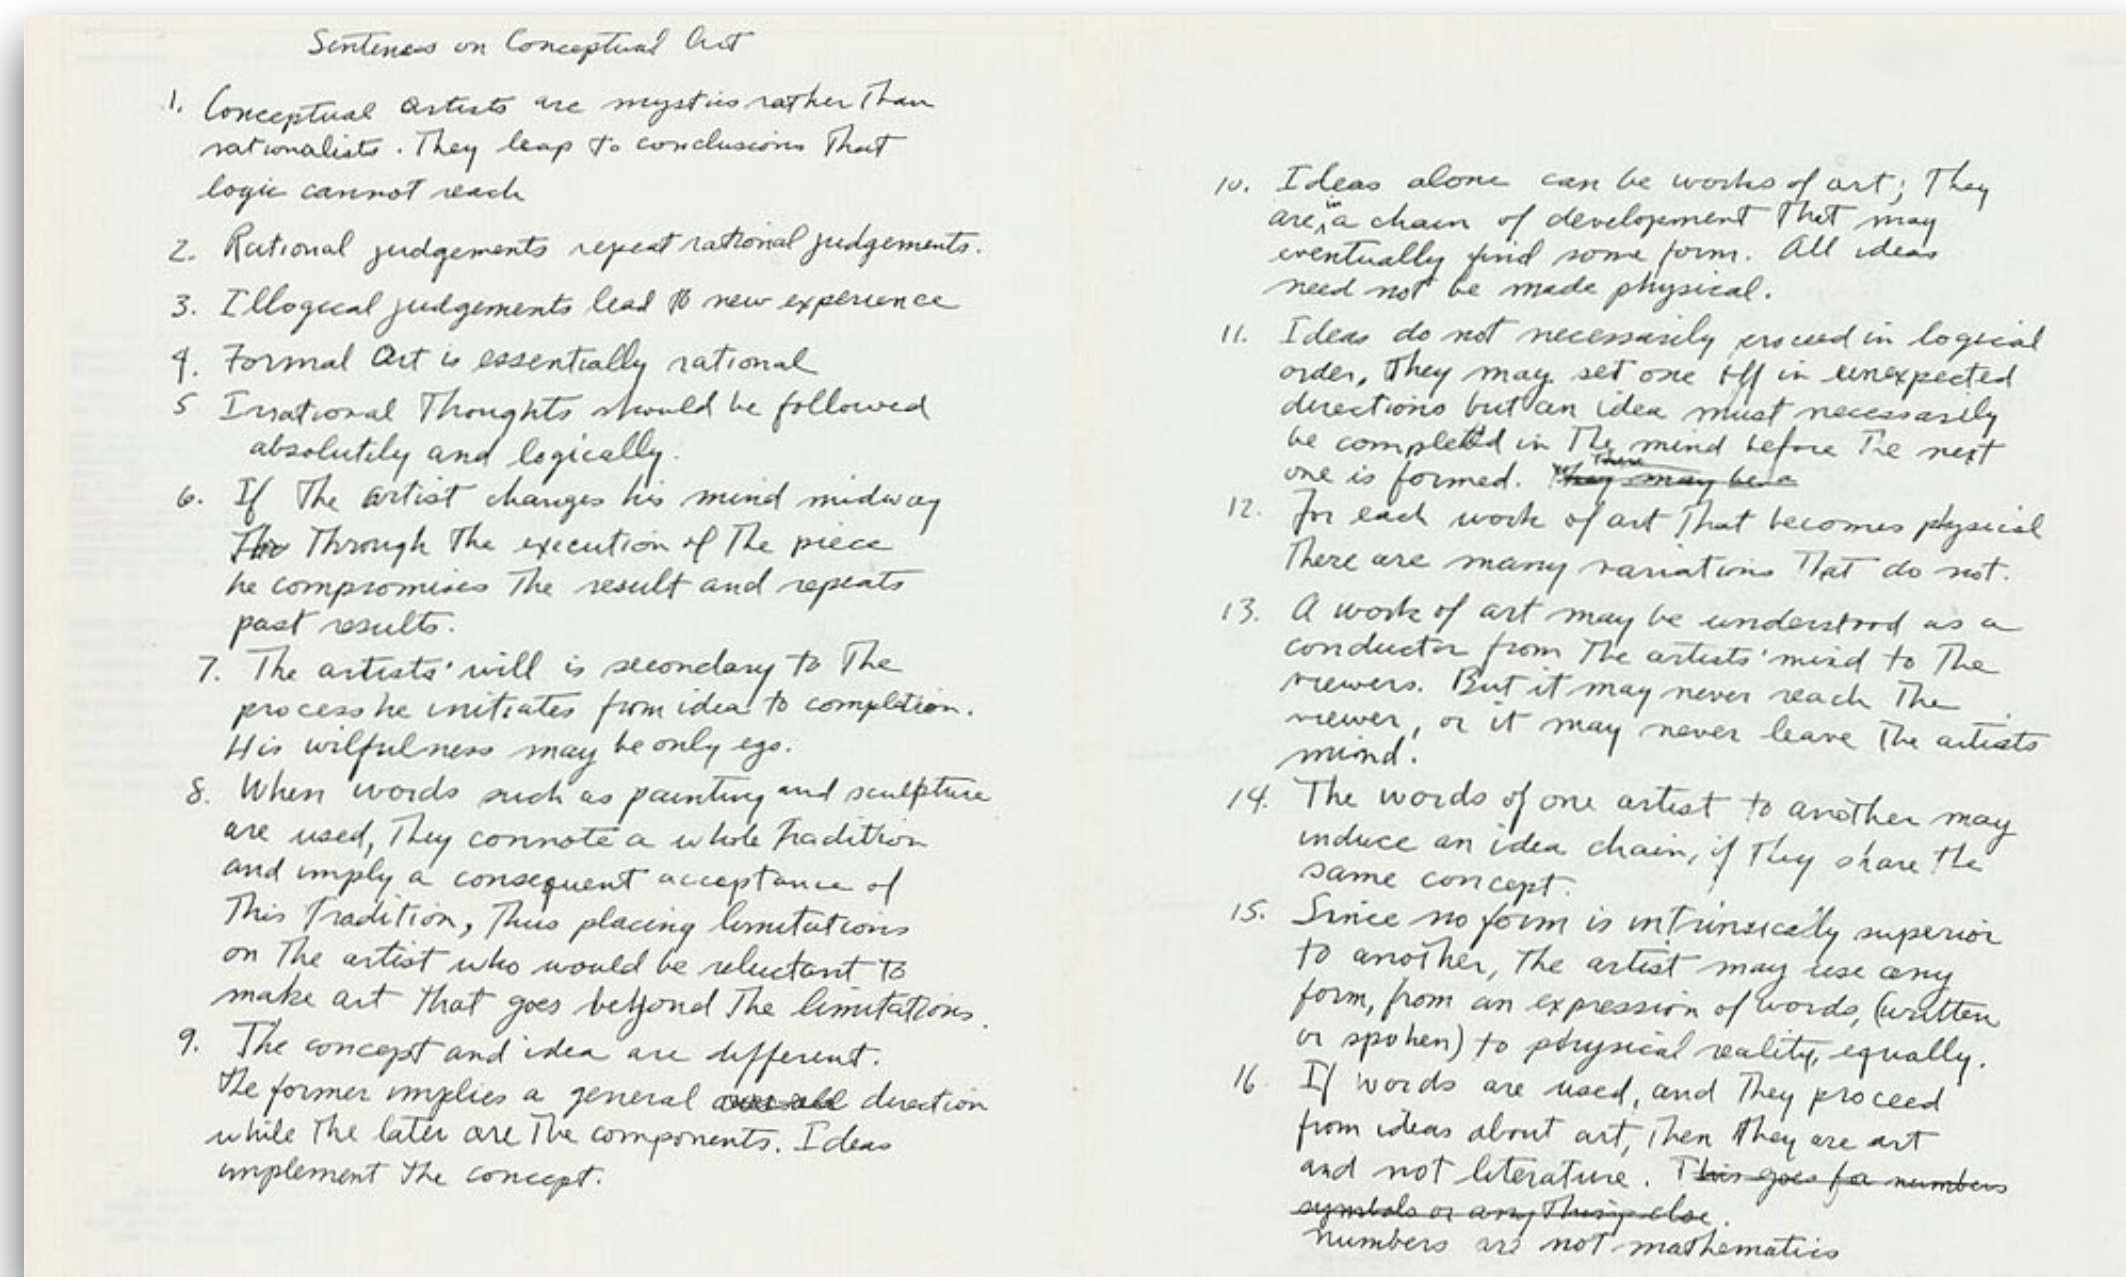 Sentences on Conceptual Art
1. Conceptual Artists are mystics rather than
rationalists. They leap to conclusions that
logic cannot reach
2. Rational judgements repeat rational judgements.
3. Illogical judgements lead to new experience
4. Formal Art is essentially rational
5 Irrational Thoughts should be followed
absolutely and logically.
6. If the artist changes his mind midway
through the execution of the piece
he compromises the result and repeats
past results.
7. The artists' will is secondary to the
process he initiates from idea to completion.
His wilfulness may be only ego.
8. When words such as painting and sculpture
are used, they connote a whole tradition
and imply a consequent acceptance of
this tradition, thus placing limitations
on the artist who would be reluctant to
make art that goes beyond the limitations.
9. The concept and idea are different.
The former implies a general over-all direction
while the later are the components. Ideas
implement the concept.
10. Ideas alone can be works of art; they
are in a chain of development that may
eventually find some form. All ideas
need not be made physical.
11. Ideas do not necessarily proceed in logical
order, they may set one off in unexpected
directions but an idea must necessarily
be completed in the mind before the next
one is formed. There They may be a
12. For each work of art that becomes physical
there are many variations that do not.
13. A work of art may be understood as a
conductor from the artists' mind to the
viewers. But it may never reach the
viewer, or it may never leave the artists
mind.
14. The words of one artist to another may
induce an idea chain, if they share the
same concept.
15. Since no form is intrinsically superior
to another, the artist may use any
form, from an expression of words, (written
or spoken) to physical reality, equally.
16 If words are used, and they proceed
from ideas about art, then they are art
and not literature. This goes for numbers
symbols or any thing else.
numbers are not mathematics